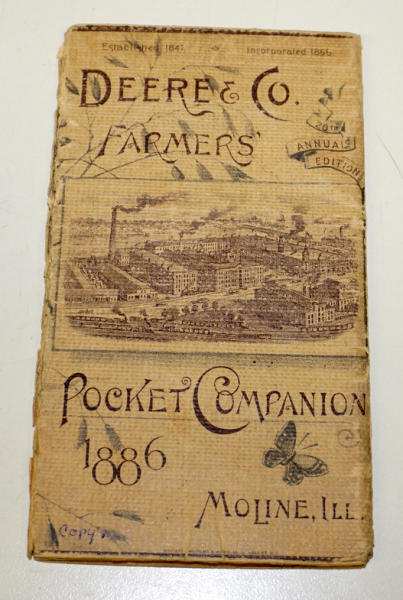 Established 1847. Incorporated 1868.
DEERE & CO.
FARMERS'
20TH
ANNUAL
EDITION
POCKET COMPANION
1886
MOLINE, ILL.
Copy